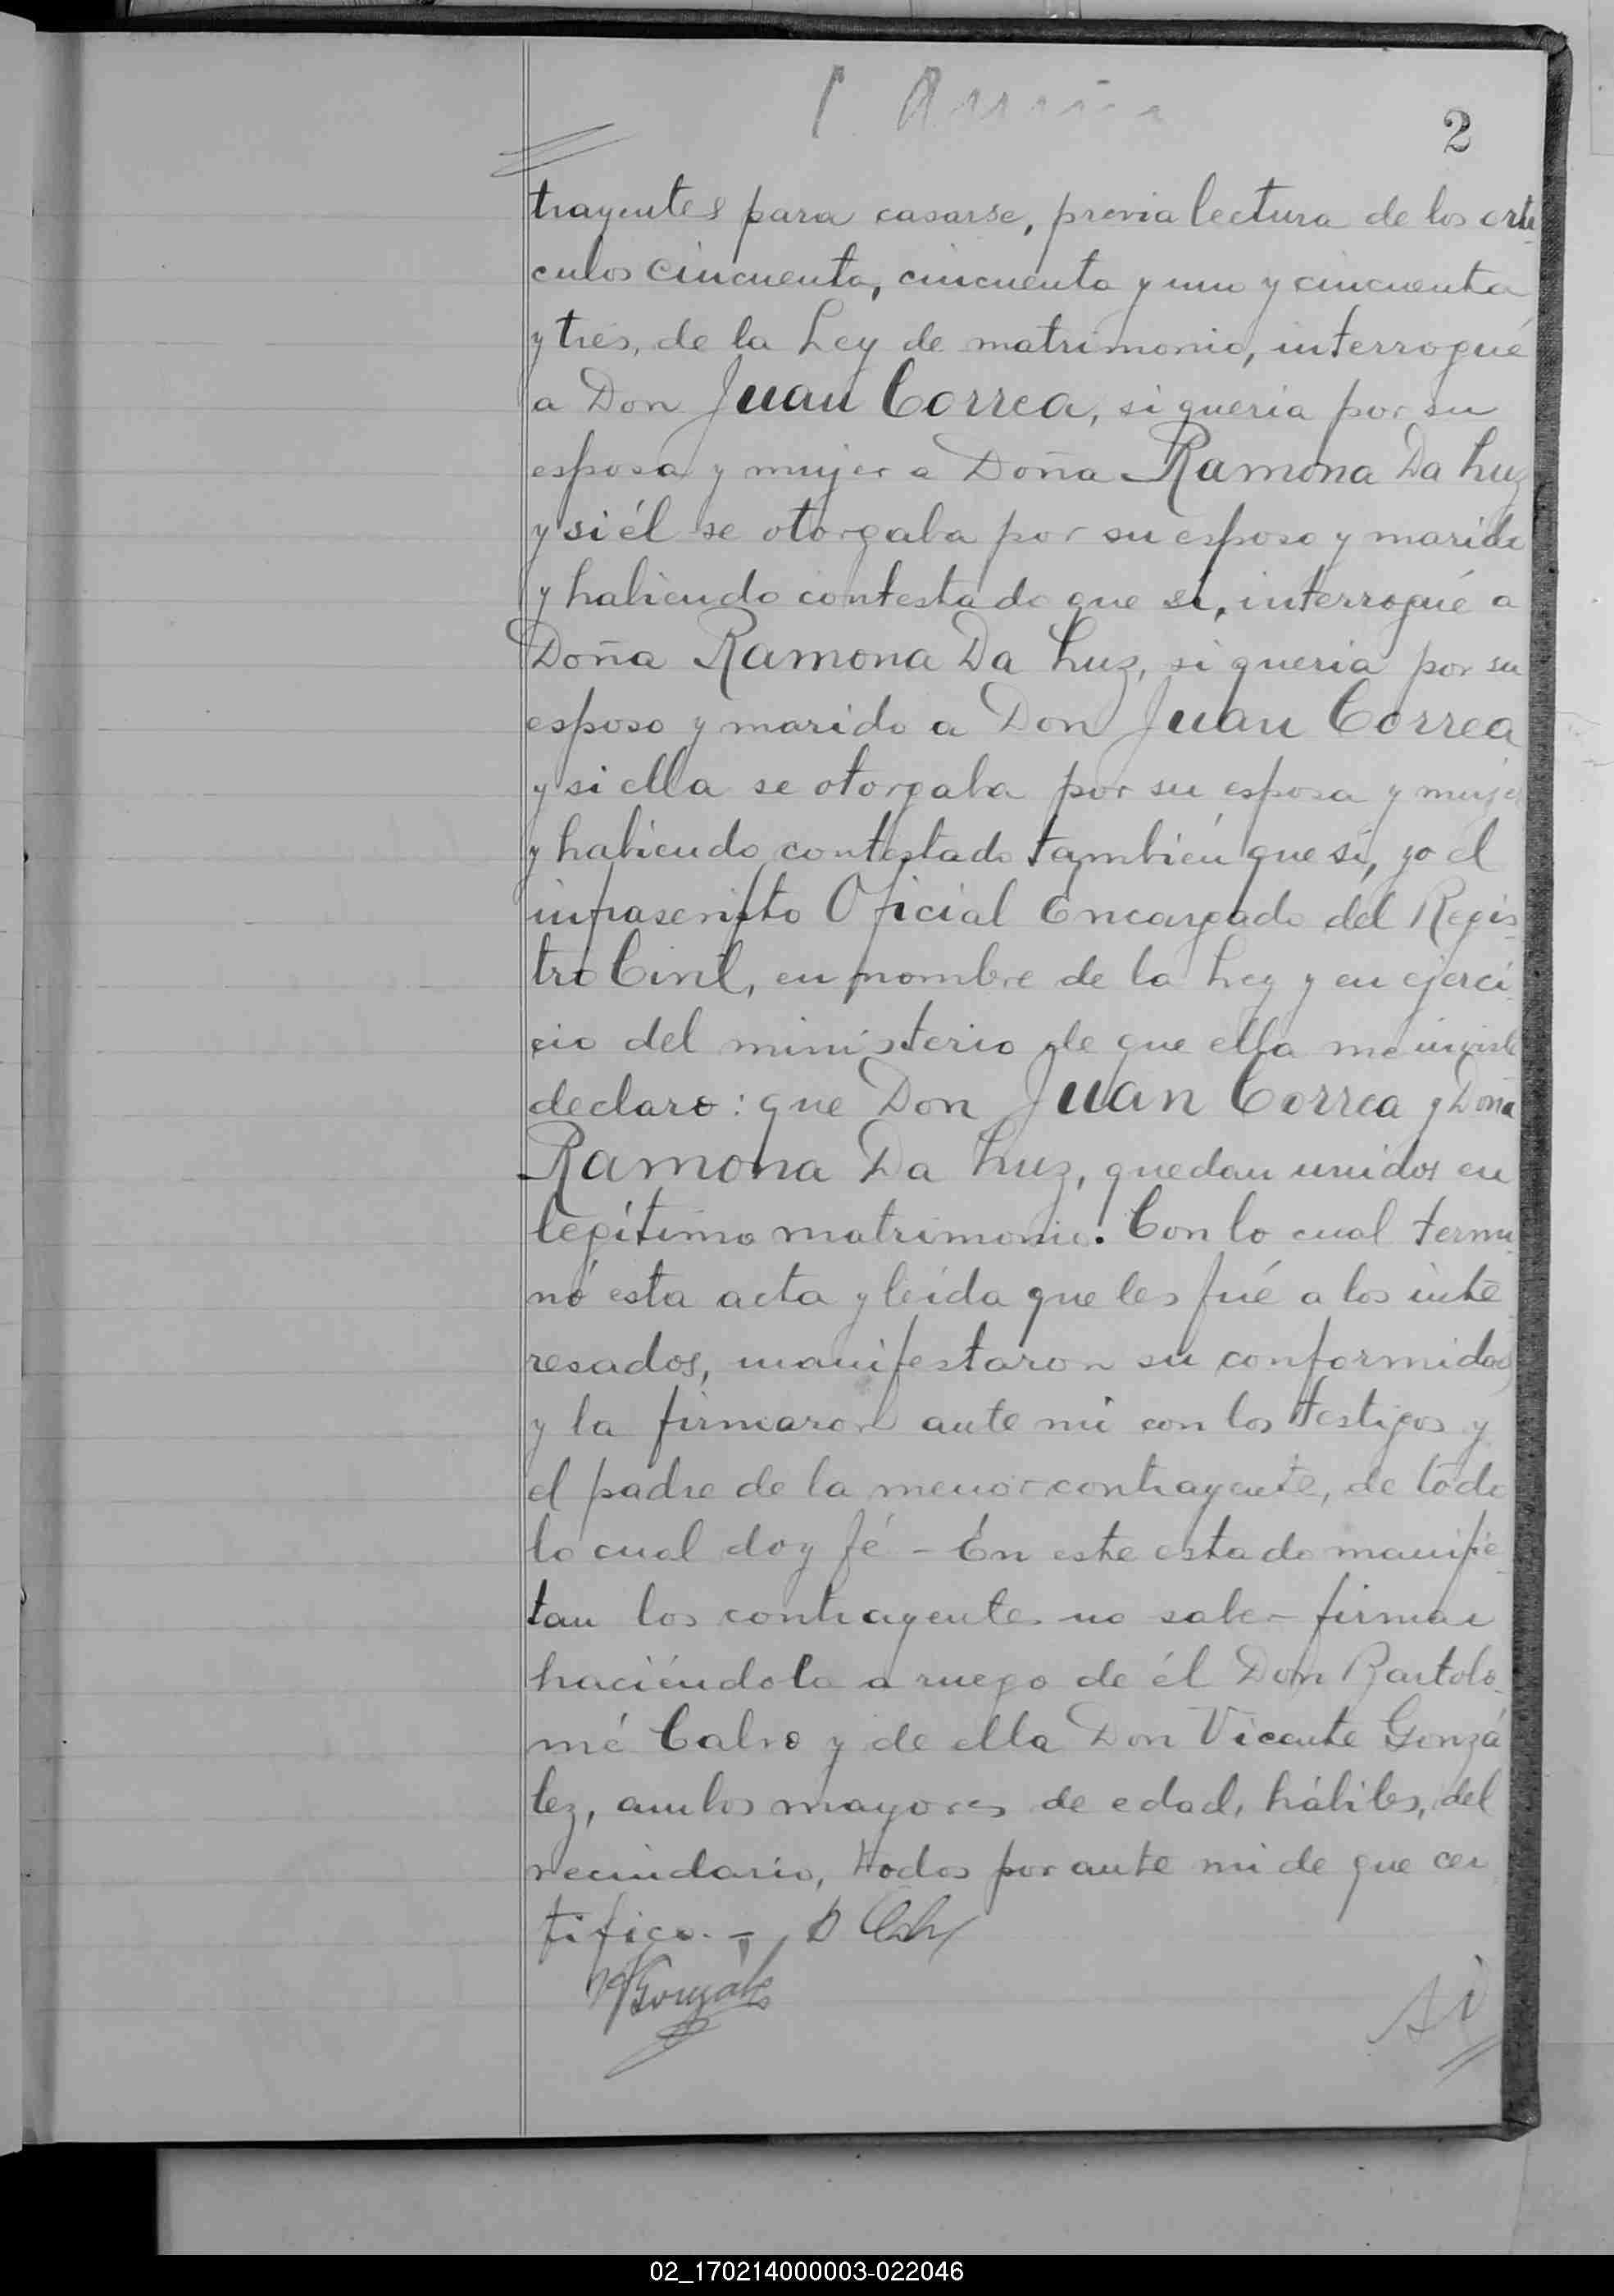 2
trayentes para casarse, previa lectura de los artí-
culos cincuenta, cincuenta y uno y cincuenta
y tres, de la Ley de matrimonio, interrogué
a Don Juan Correa, si queria por su
esposa y mujer a Doña Ramona Da Luz
y si él se otorgaba por su esposo y marido
y habiendo contestado que si, interrogué a
Doña Ramona Da Luz, si queria por su
esposo y marido a Don Juan Correa
y si ella se otorgaba por su esposa y mujer
y habiendo contestado también que si, yo el
infrascripto Oficial Encargado del Regis-
tro Civil, en nombre de la Ley y en ejerci-
cio del ministerio de que ella me inviste
declaro: que Don Juan Correa y Doña
Ramona Da Luz, quedan unidos en
legítimo matrimonio. Con lo cual termi-
nó esta acta y leída que les fué a los inte-
resados, manifestaron su conformidad
y la firmaron ante mi con los testigos y
el padre de la menor contrayente, de todo
lo cual doy fé - En este estado manifie-
tan los contrayentes no saber firmar
haciéndolo a ruego de él Don Bartolo-
mé Calvo y de ella Don Vicente Gonzá
lez, ambos mayores de edad, hábiles, del
vecindario, todos por ante mi de que cer
tifico. -
VGonzález
02_170214000003-022046